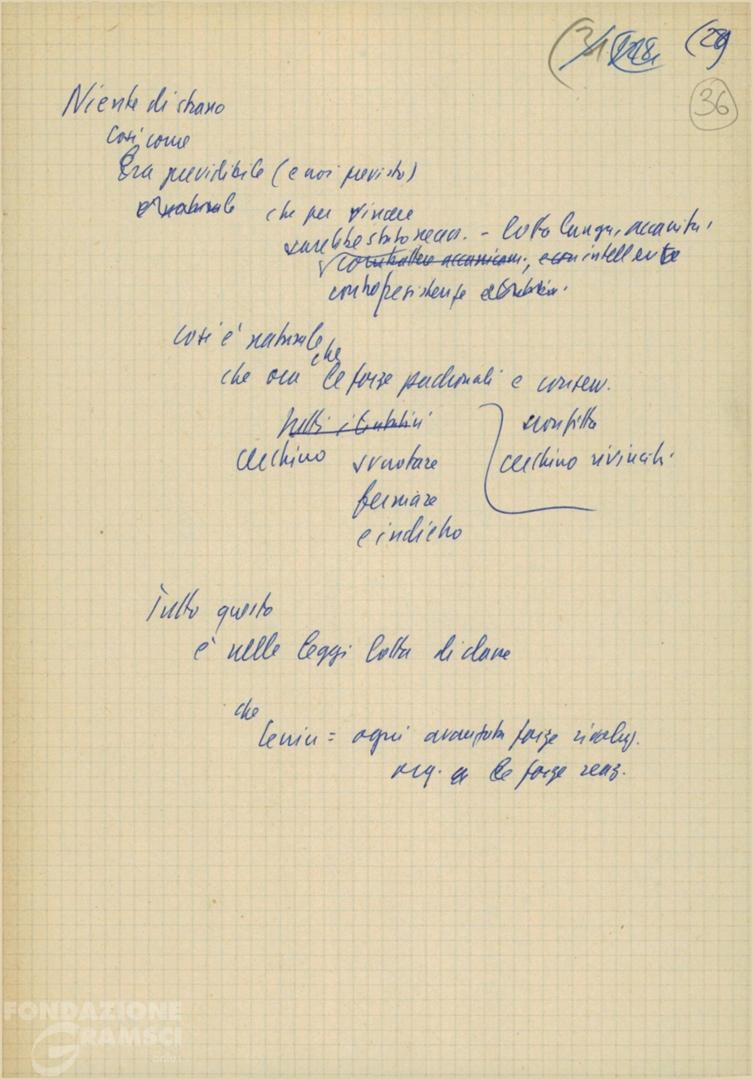 (31 (29
36
Niente di strano
così come
Era prevedibile (e noi previsto)
è naturale che per vincere
sarebbe stato necess. - lotta lunga, accanita,
combattere accanitam., e con intell
contro resistenze
così è naturale
che
che ora le forze padronali e conserv.
tutti i tentativi
cerchino svuotare
fermare
e indietro
sconfitta
cerchino rivincite
Tutto questo
è nelle leggi lotta di classe
che
Lenin = ogni avanzata forze rivoluz.
org. le forze reaz.
FONDAZIONE
GRAMSCI
onlus